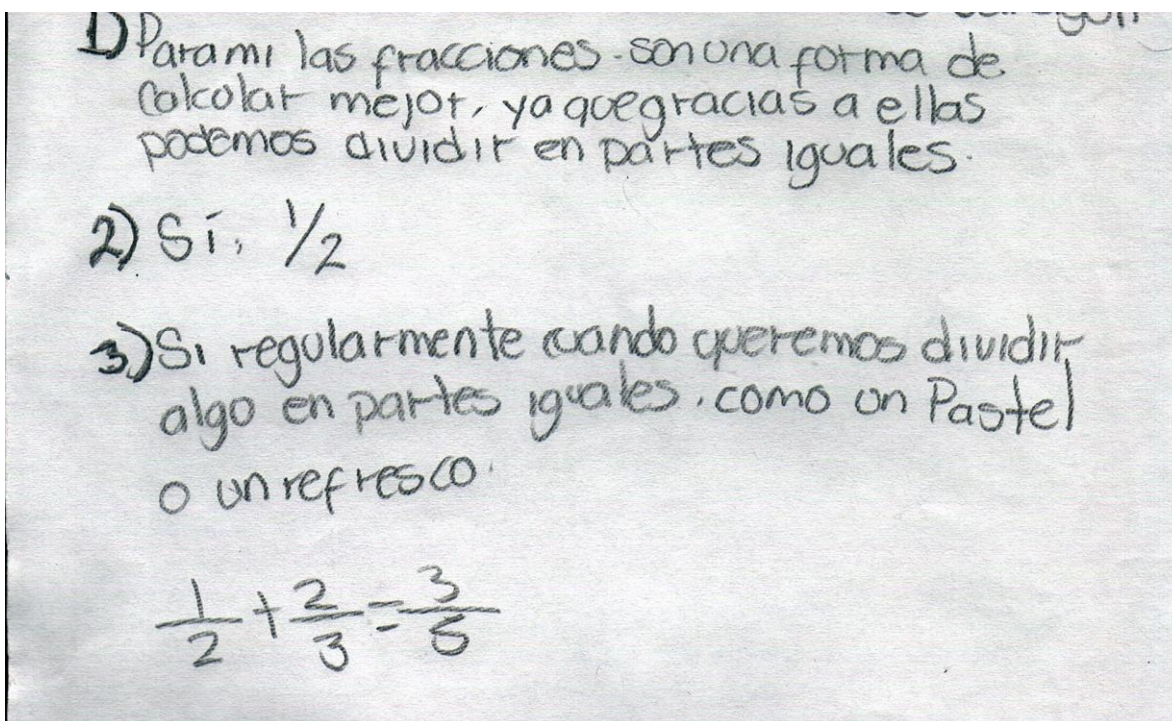 1) Para mi las fracciones son una forma de
calcolar mejor, ya que gracias a ellas
podemos dividir en partes iguales.
2) Sí, 1/2
3.) Si regularmente cuando queremos dividir
algo en partes iguales. como un Pastel
o un refresco.
1/2 + 2/3 = 3/5